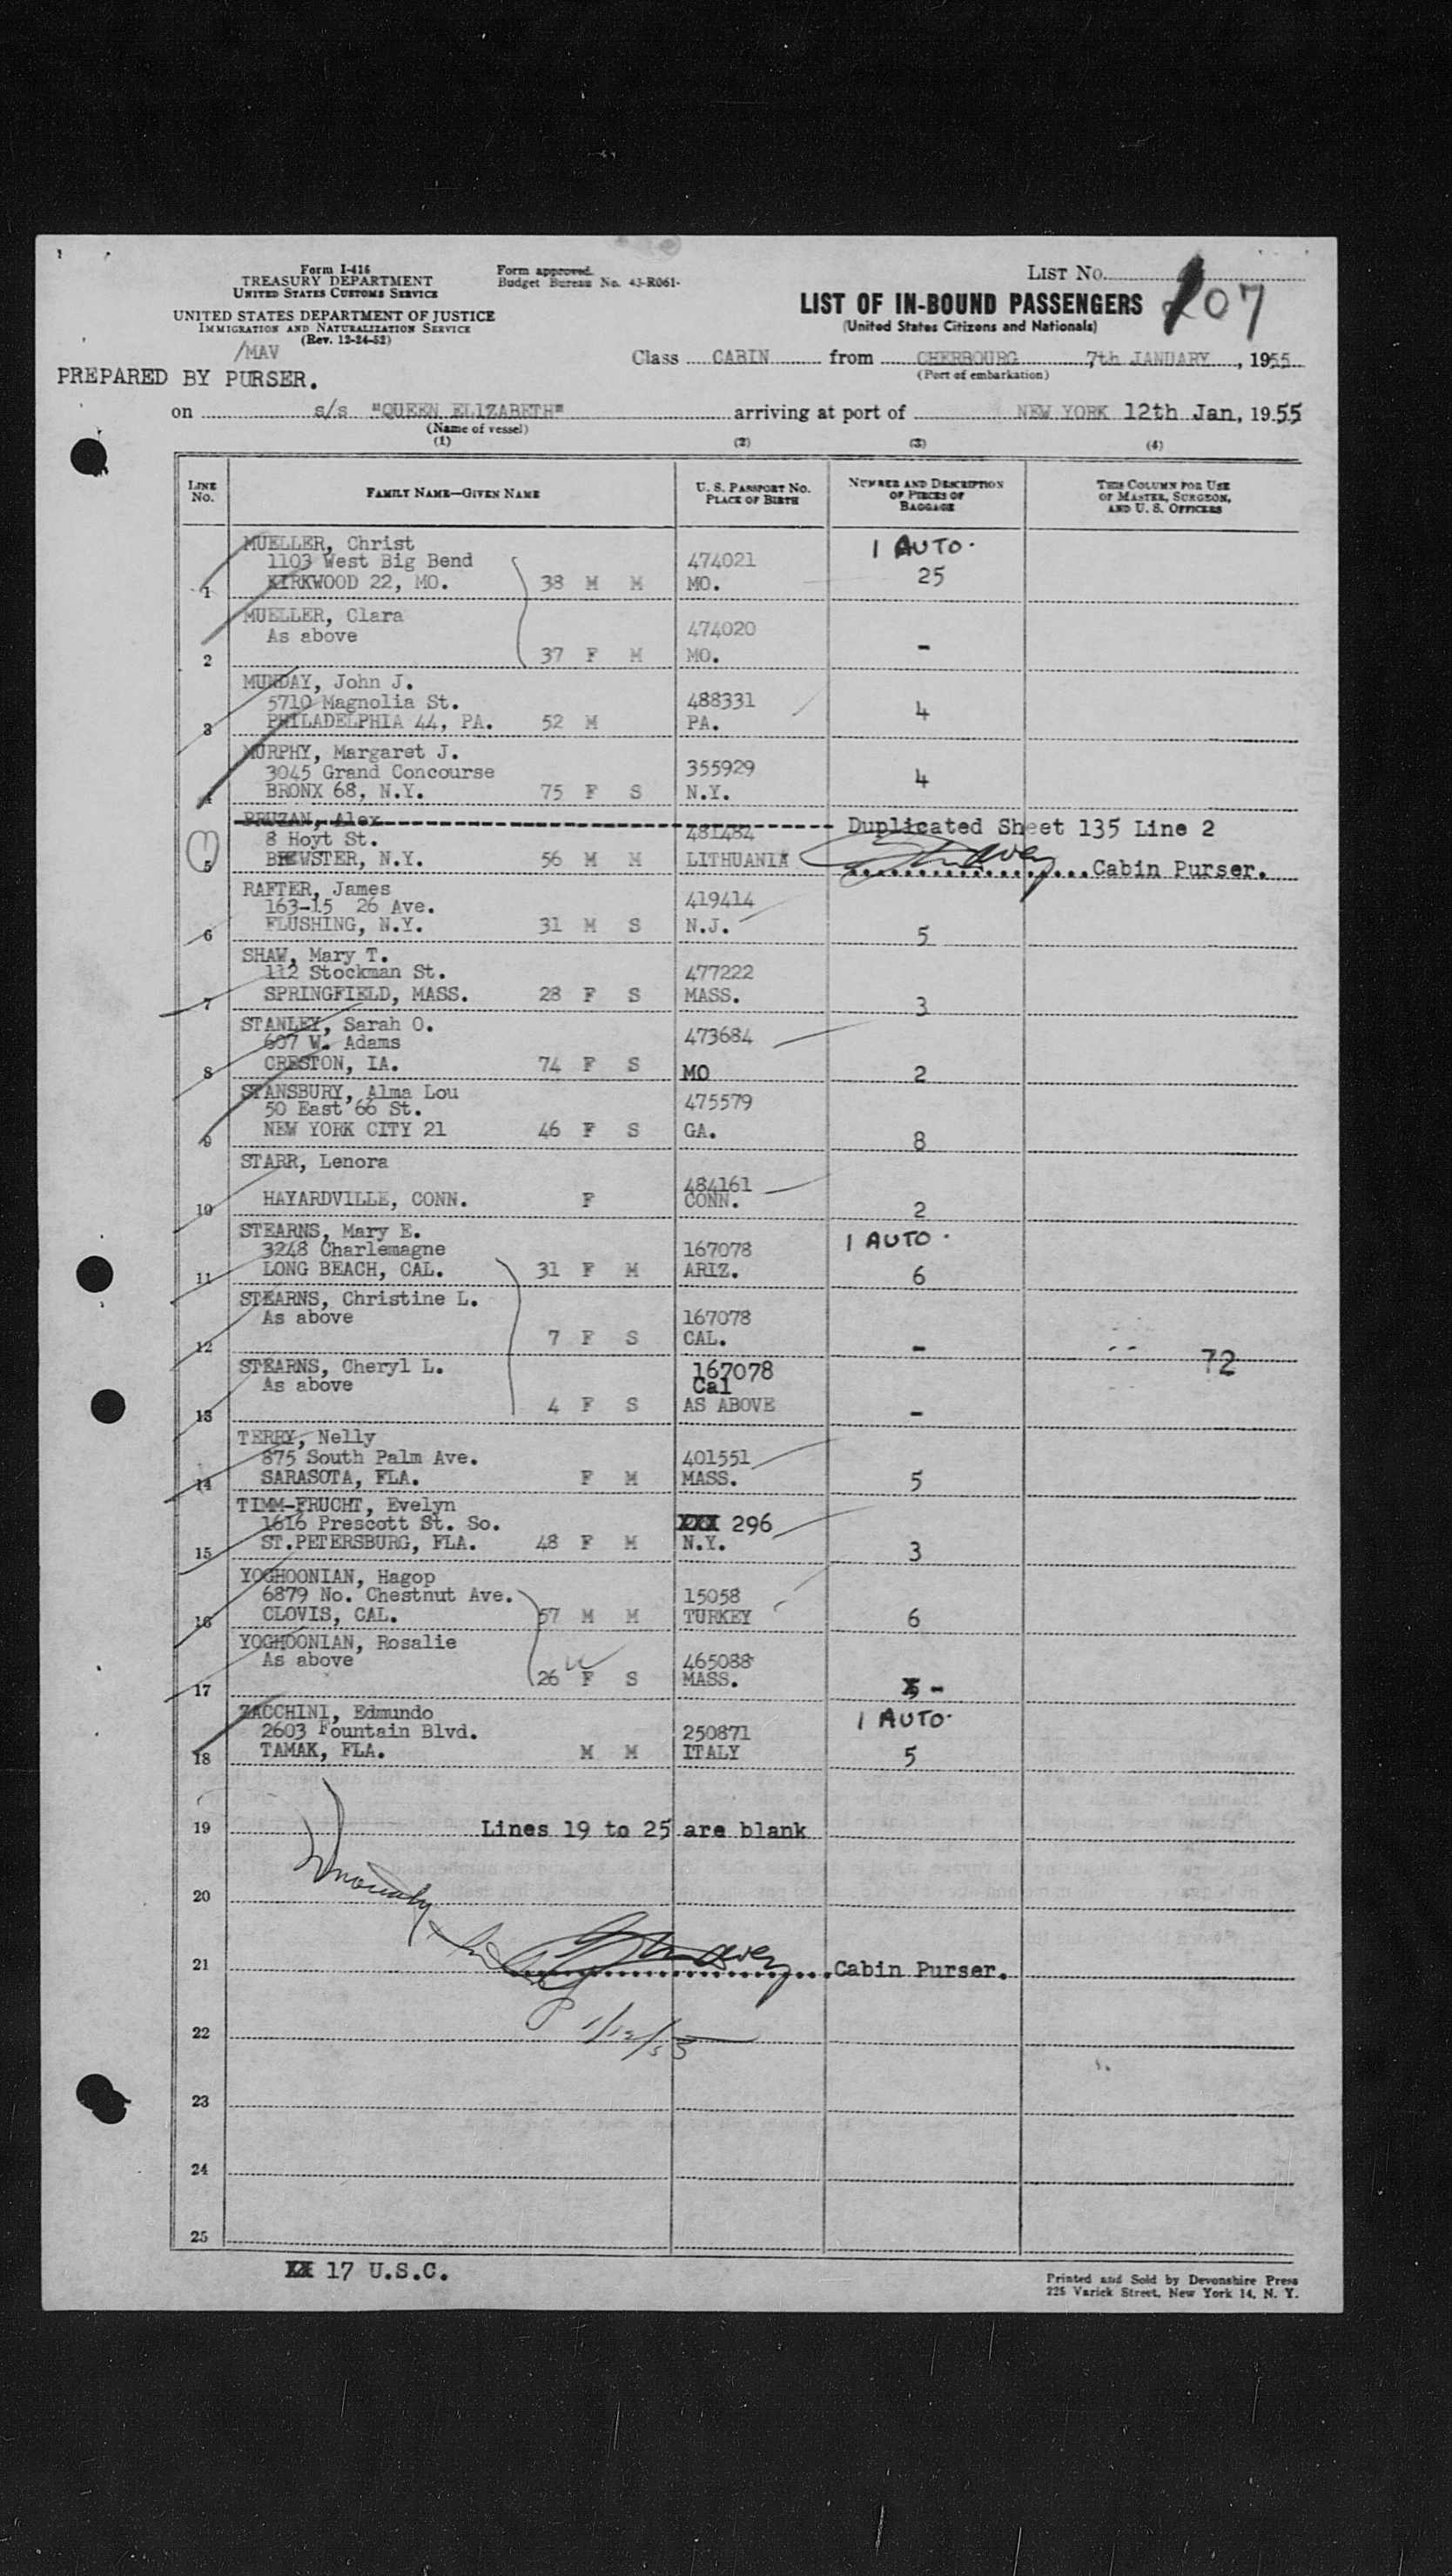 Form I-416
TREASURY DEPARTMENT
UNITED STATES CUSTOMS SERVICE
UNITED STATES DEPARTMENT OF JUSTICE
IMMIGRATION AND NATURALIZATION SERVICE
(Rev. 12-24-52)
/MAV
PREPARED BY PURSER.
Form approved.
Budget Bureau No. 43-R061-
LIST NO.
207
LIST OF IN-BOUND PASSENGERS
(United States Citizens and Nationals)
Class CABIN from CHERBOURG 7th JANUARY, 1955
(Port of embarkation)
on s/s "QUEEN ELIZABETH" arriving at port of NEW YORK 12th Jan, 1955
(Name of vessel)
(1) (2) (3) (4)
LINE NO.
FAMILY NAME—GIVEN NAME
U. S. PASSPORT NO.
PLACE OF BIRTH
NUMBER AND DESCRIPTION
OF PIECES OF
BAGGAGE
THIS COLUMN FOR USE
OF MASTER, SURGEON,
AND U. S. OFFICERS
MUELLER, Christ 1 AUTO.
1103 West Big Bend 474021
1 KIRKWOOD 22, MO. 38 M M MO. 25
MUELLER, Clara
As above 474020
2 37 F M MO. -
MUNDAY, John J.
5710 Magnolia St. 488331
3 PHILADELPHIA 44, PA. 52 M PA. 4
MURPHY, Margaret J.
3045 Grand Concourse 355929
4 BRONX 68, N.Y. 75 F S N.Y. 4
PRUZAN, Alex Duplicated Sheet 135 Line 2
8 Hoyt St. 481484
5 BREWSTER, N.Y. 56 M M LITHUANIA Cabin Purser.
RAFTER, James
163-15 26 Ave. 419414
6 FLUSHING, N.Y. 31 M S N.J. 5
SHAW, Mary T.
112 Stockman St. 477222
7 SPRINGFIELD, MASS. 28 F S MASS. 3
STANLEY, Sarah O.
607 W. Adams 473684
8 CRESTON, IA. 74 F S MO 2
STANSBURY, Alma Lou
50 East 66 St. 475579
9 NEW YORK CITY 21 46 F S GA. 8
STARR, Lenora
484161
10 HAYARDVILLE, CONN. F CONN. 2
STEARNS, Mary E. 1 AUTO.
3248 Charlemagne 167078
11 LONG BEACH, CAL. 31 F M ARIZ. 6
STEARNS, Christine L.
As above 167078
12 7 F S CAL. -
72
STEARNS, Cheryl L. 167078
As above Cal
13 4 F S AS ABOVE -
TERRY, Nelly
875 South Palm Ave. 401551
14 SARASOTA, FLA. F M MASS. 5
TIMM-FRUCHT, Evelyn
1616 Prescott St. So. XXX 296
15 ST.PETERSBURG, FLA. 48 F M N.Y. 3
YOGHOONIAN, Hagop
6879 No. Chestnut Ave. 15058
16 CLOVIS, CAL. 57 M M TURKEY 6
YOGHOONIAN, Rosalie
As above 465088
17 26 F S MASS. -
ZACCHINI, Edmundo 1 AUTO.
2603 Fountain Blvd. 250871
18 TAMAK, FLA. M M ITALY 5
19 Lines 19 to 25 are blank
20
21 Cabin Purser.
22 1/12/55
23
24
25
XX 17 U.S.C.
Printed and Sold by Devonshire Press
225 Varick Street, New York 14, N. Y.